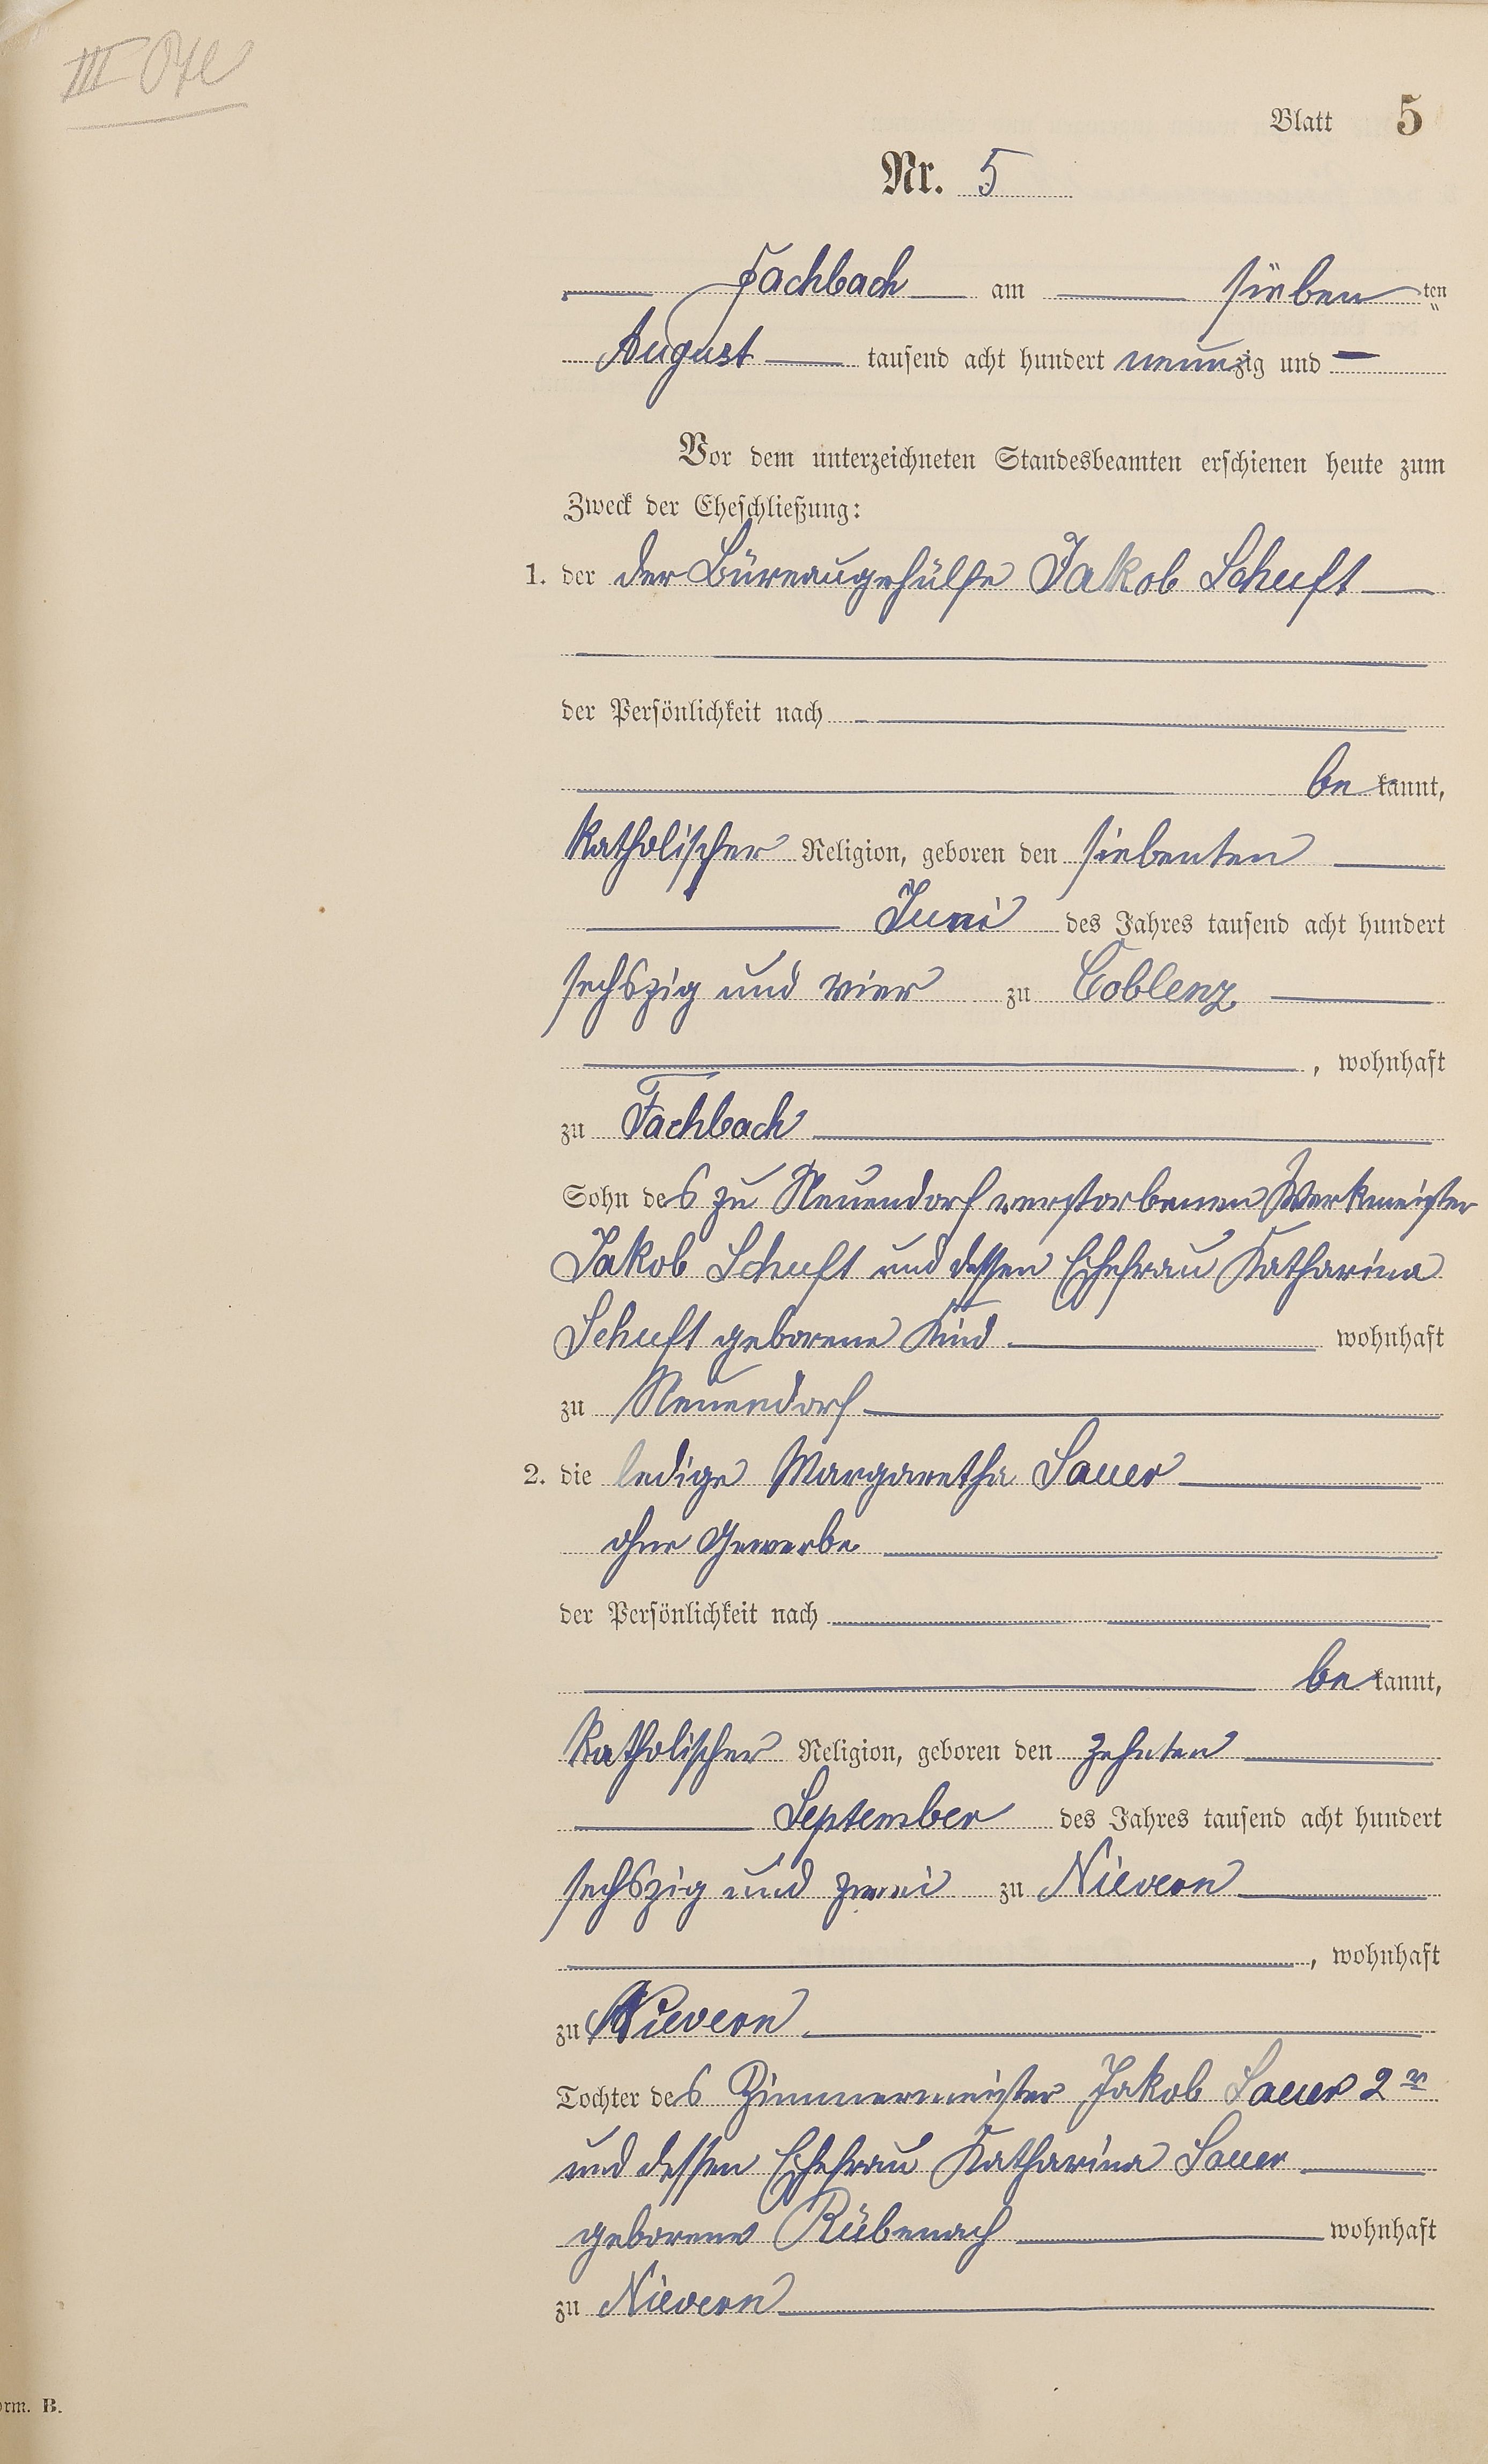 Blatt 5
Nr. 5
Fachbach am sieben ten
August tausend acht hundert neunzig und —
Vor dem unterzeichneten Standesbeamten erschienen heute zum
Zweck der Eheschließung:
1. der der Büreaugehülfe Jakob Schuft
der Persönlichkeit nach
be kannt,
katholischer Religion, geboren den siebenten
Juni des Jahres tausend acht hundert
sechszig und vier zu Coblenz
, wohnhaft
zu Fachbach
Sohn des zu Neuendorf verstorbenen Werkmeister
Jakob Schuft und dessen Ehefrau Katharina
Schuft geborene Kind wohnhaft
zu Neuendorf
2. die ledige Margaretha Sauer
ohne Gewerbe
der Persönlichkeit nach
be kannt,
katholischer Religion, geboren den zehnten
September des Jahres tausend acht hundert
sechszig und zwei zu Nievern
, wohnhaft
zu Nievern
Tochter des Zimmermeister Jakob Sauer 2r
und dessen Ehefrau Katharina Sauer
geborene Rübenach wohnhaft
zu Nievern
orm. B.